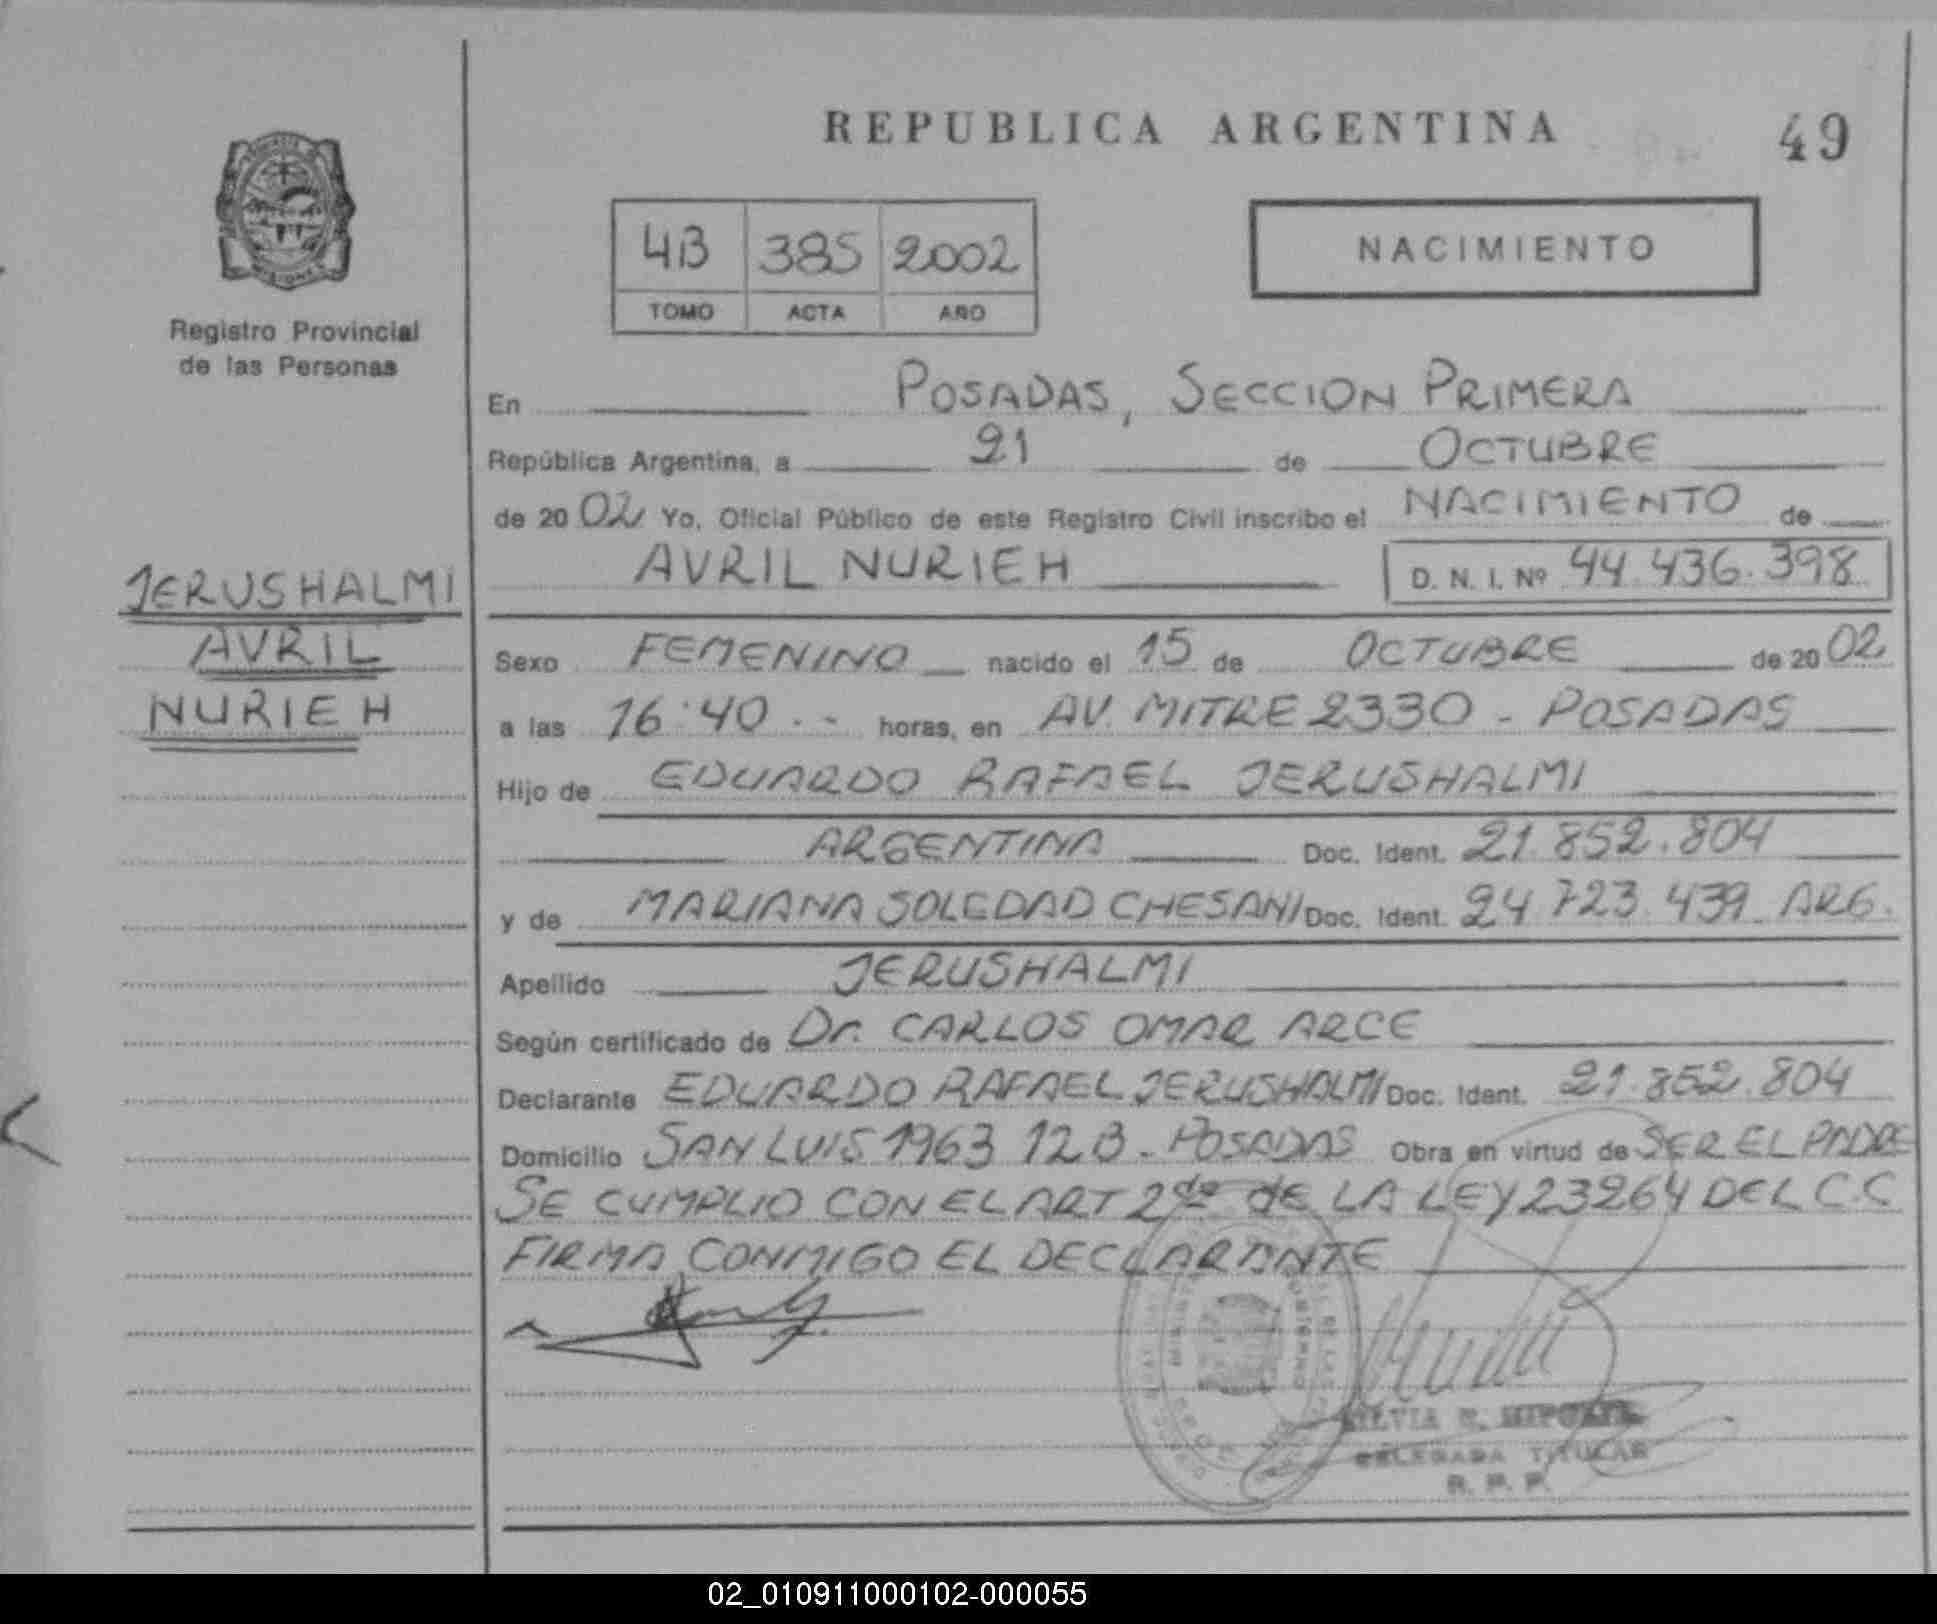 REPUBLICA ARGENTINA
49
4B 385 2002
TOMO ACTA AÑO
NACIMIENTO
Registro Provincial
de las Personas
JERUSHALMI
AVRIL
NURIEH
En POSADAS, SECCION PRIMERA
República Argentina, a 21 de OCTUBRE
de 2002 Yo, Oficial Público de este Registro Civil inscribo el NACIMIENTO de
AVRIL NURIEH D. N. I. Nº 44.436.398
Sexo FEMENINO nacido el 15 de OCTUBRE de 2002
a las 16:40.- horas, en AV. MITRE 2330 - POSADAS
Hijo de EDUARDO RAFAEL JERUSHALMI
ARGENTINA Doc. Ident. 21.852.804
y de MARIANA SOLEDAD CHESANI Doc. Ident. 24.723.439 ARG.
Apellido JERUSHALMI
Según certificado de Dr. CARLOS OMAR ARCE
Declarante EDUARDO RAFAEL JERUSHALMI Doc. Ident. 21.852.804
Domicilio SAN LUIS 1963 12B - POSADAS Obra en virtud de SER EL PADRE
SE CUMPLIO CON EL ART 2do de LA LEY 23264 DEL C.C
FIRMA CONMIGO EL DECLARANTE
DELEGADA TITULAR
R. P. P.
02_010911000102-000055